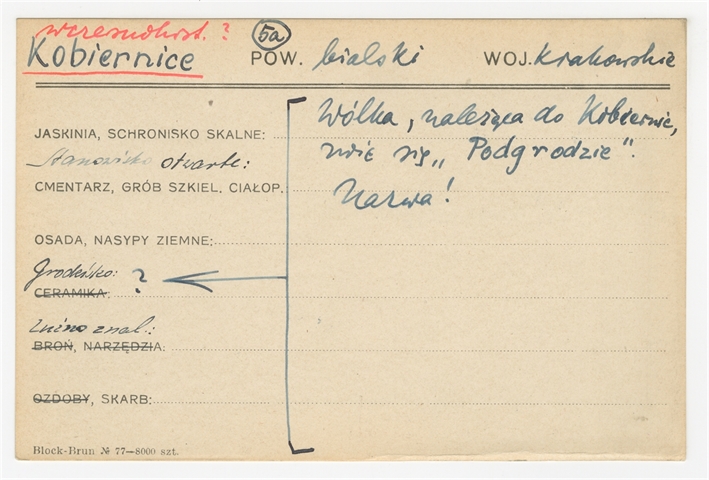 wczesnohist. ?
Kobiernice
5a
POW. bialski WOJ. Krakowskie
Wólka, należąca do Kobiernic,
JASKINIA, SCHRONISKO SKALNE:
zwie się „Podgrodzie".
Stanowisko otwarte:
CMENTARZ, GRÓB SZKIEL. CIAŁOP.
Nazwa!
OSADA, NASYPY ZIEMNE:
Grodzisko: ?
CERAMIKA:
Luźno znal.:
BROŃ, NARZĘDZIA:
OZDOBY, SKARB:
Block-Brun № 77—8000 szt.